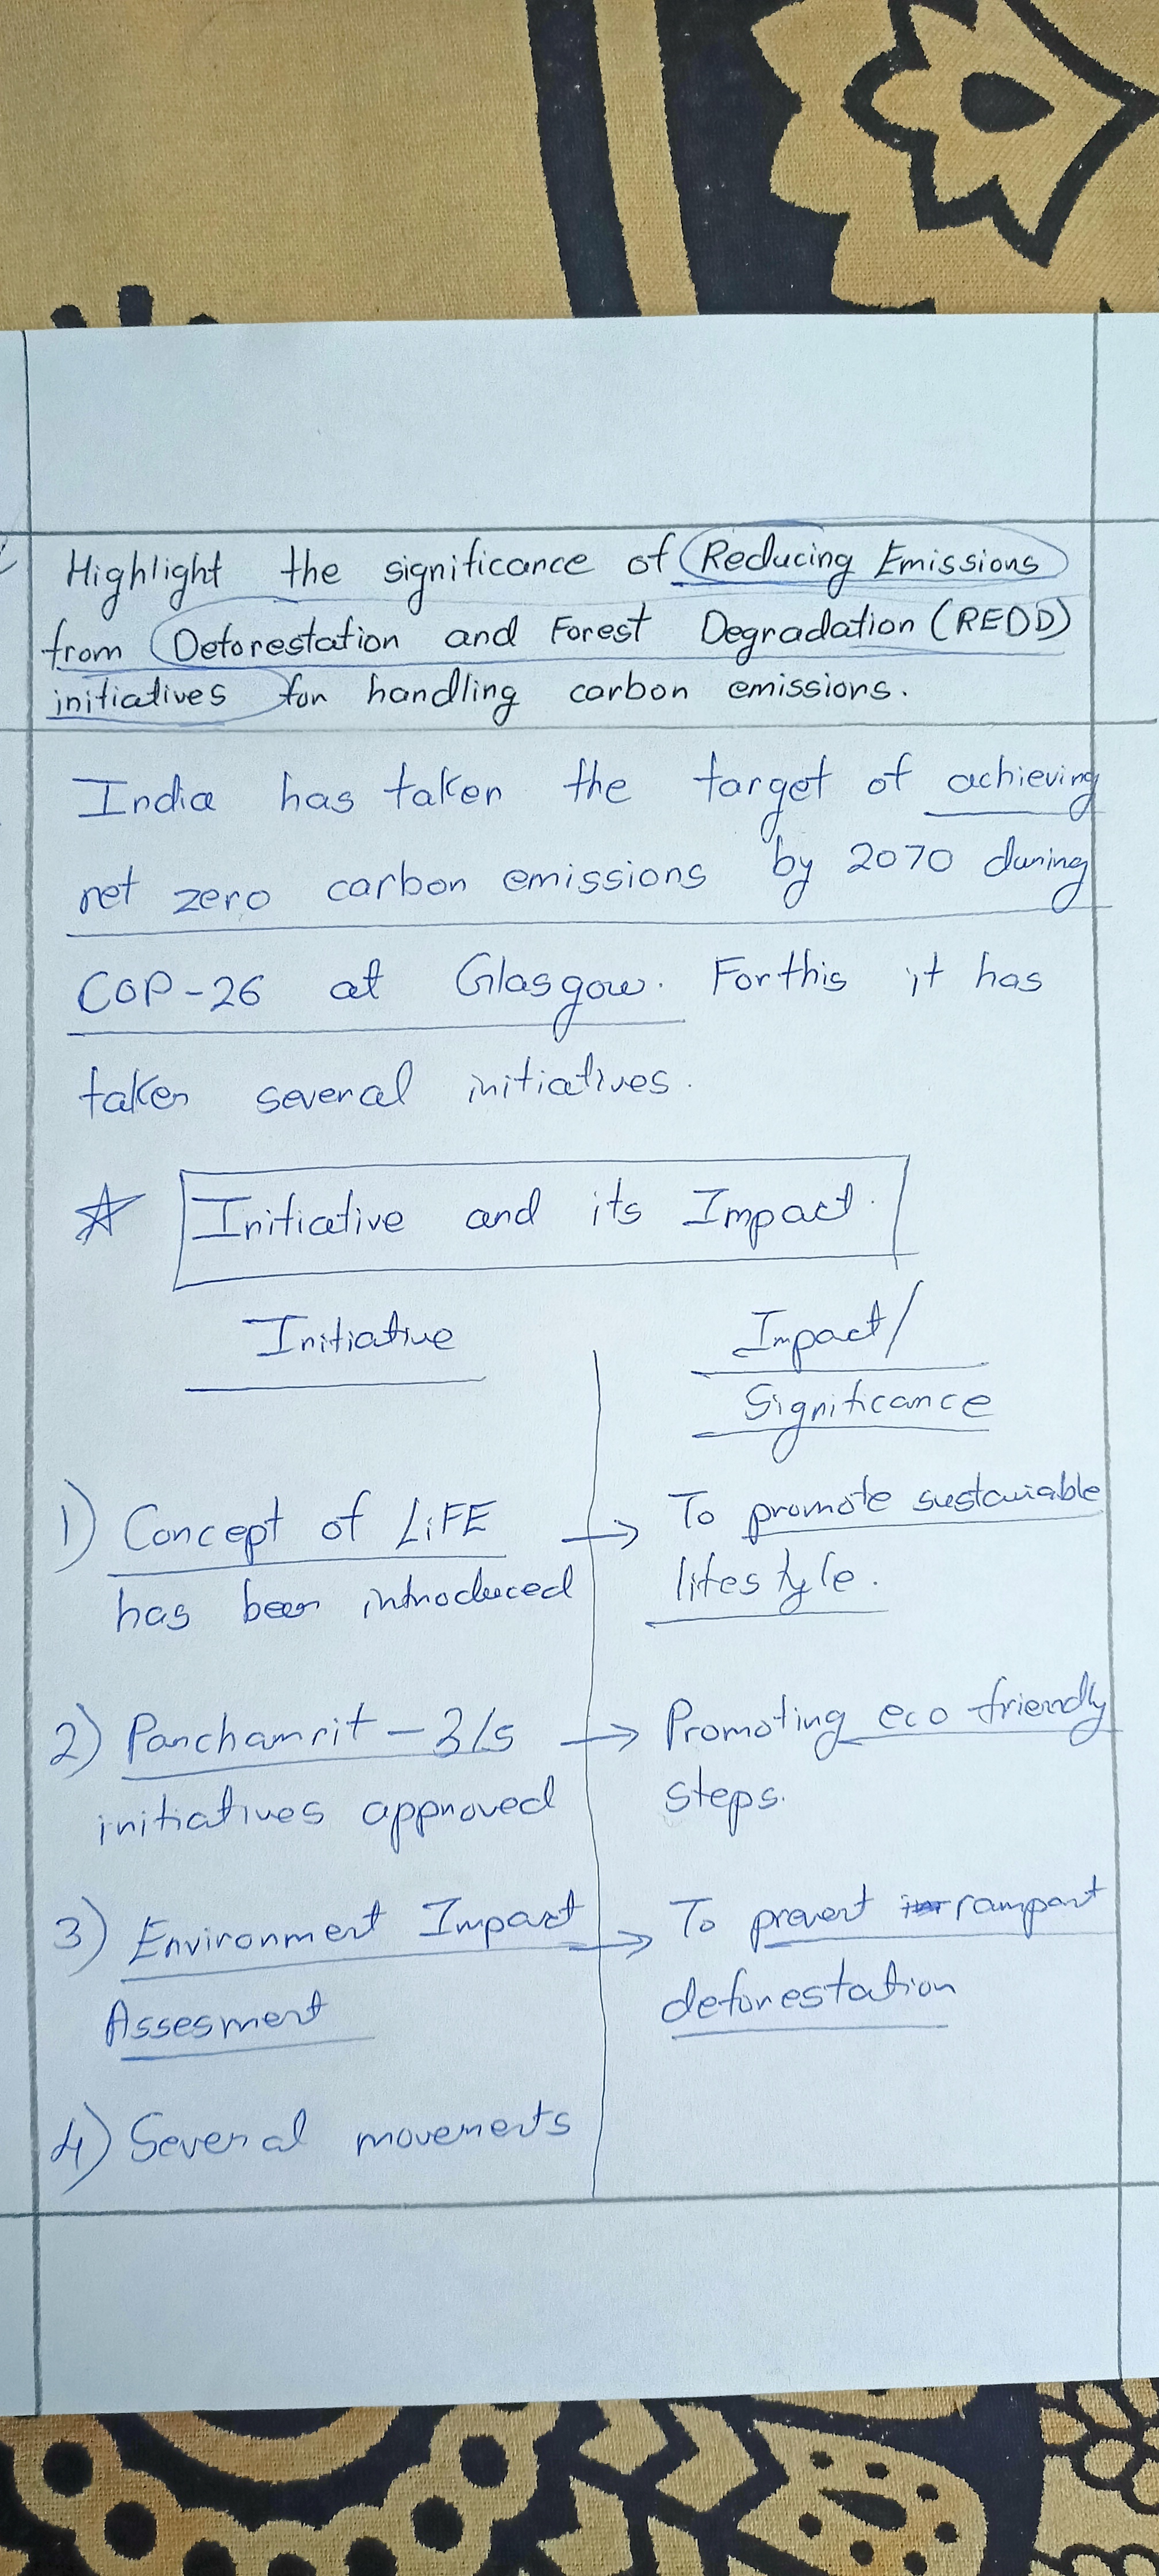 Highlight the significance of Reducing Emissions
from Deforestation and Forest Degradation (REDD)
initiatives for handling carbon emissions.
India has taken the target of achieving
net zero carbon emissions by 2070 during
COP-26 at Glasgow. For this it has
taken several initiatives.
Initiative and its Impact.
Initiative
Impact/
Significance
1) Concept of LiFE → To promote sustainable
has been introduced lifestyle.
2) Panchamrit - → Promoting eco friendly
initiatives approved steps.
3) Environment Impact → To prevent rampant
Assesment deforestation
4) Several movements